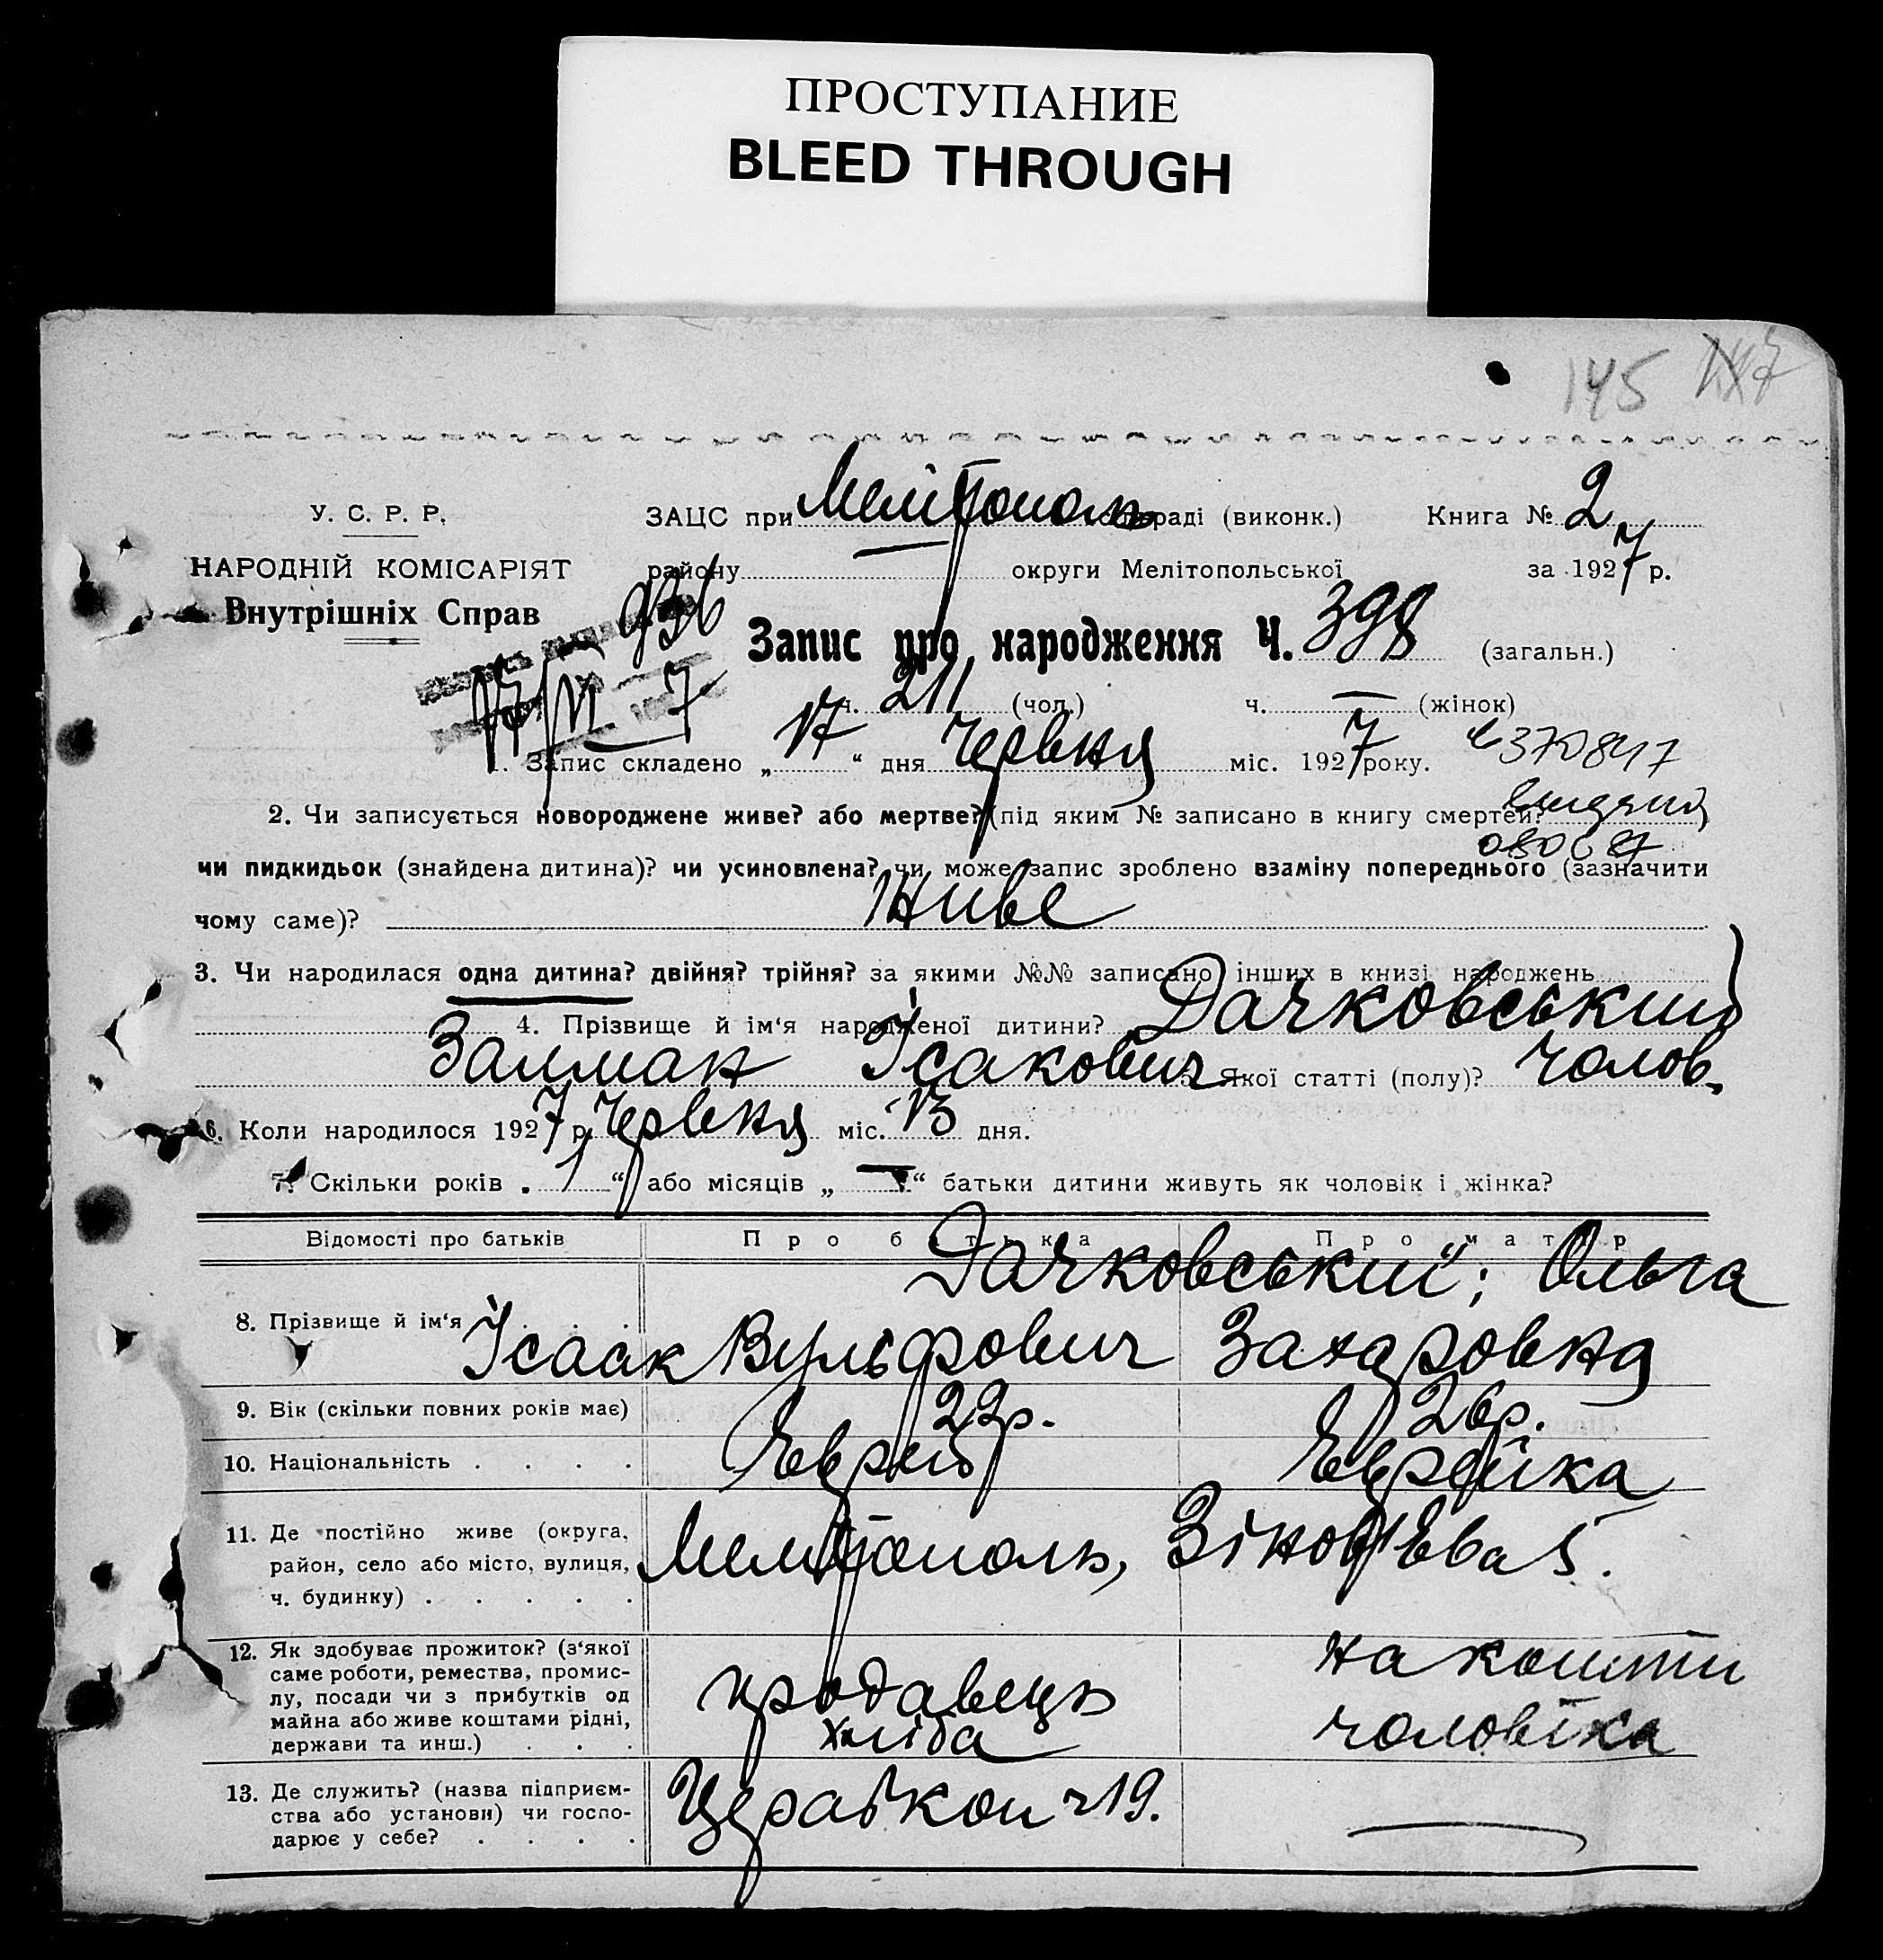 ПРОСТУПАНИЕ
BLEED THROUGH
145 147
У. С. Р. Р.
НАРОДНІЙ КОМІСАРІЯТ
Внутрішніх Справ
ЗАЦС при Мелітополь раді (виконк.) Книга № 2
району — округи Мелітопольської за 1927 р.
936
Запис про народження Ч. 398 (загальн.)
17/VI 7
ч. 211 (чол.) ч. — (жінок)
1. Запис складено „ 17 “ дня Червня міс. 1927 року.
370847
2. Чи записується новороджене живе? або мертве? (під яким № записано в книгу смертей?
чи пидкидьок (знайдена дитина)? чи усиновлена? чи може запис зроблено взаміну попереднього (зазначити
чому саме)? Живе
3. Чи народилася одна дитина? двійня? трійня? за якими №№ записано інших в книзі народжень
4. Прізвище й ім‘я народженої дитини? Дачковський
Залман Ісакович 5. Якої статті (полу)? Чолов.
6. Коли народилося 1927 р. Червня міс. 13 дня.
7. Скільки років „ 1 “ або місяців „ — “ батьки дитини живуть як чоловік і жінка?
Відомості про батьків Про батька Про матір
8. Прізвище й ім‘я . . . .
Дачковський; Ольга
Ісаак Вульфович Захаровна
9. Вік (скільки повних років має) 22р. 26р.
10. Національність . . . . Еврей Еврейка
11. Де постійно живе (округа,
район, село або місто, вулиця,
ч. будинку) . . . . .
Мелітополь, Зінов'ева 5.
12. Як здобуває прожиток? (з‘якої
саме роботи, ремества, промис-
лу, посади чи з прибутків од
майна або живе коштами рідні,
держави та инш.) . . .
продавець
хліба
на кошти
чоловіка
13. Де служить? (назва підприєм-
ства або установи) чи госпо-
дарює у себе? . . . .
Церабкоп ч 19.